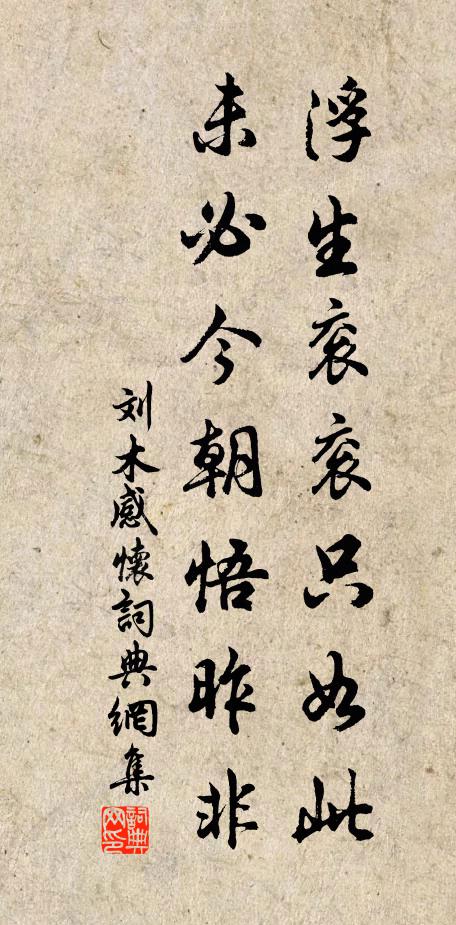 浮生衮衮只如此
未必今朝悟昨非
刘木感怀詞典網集
詞典网印